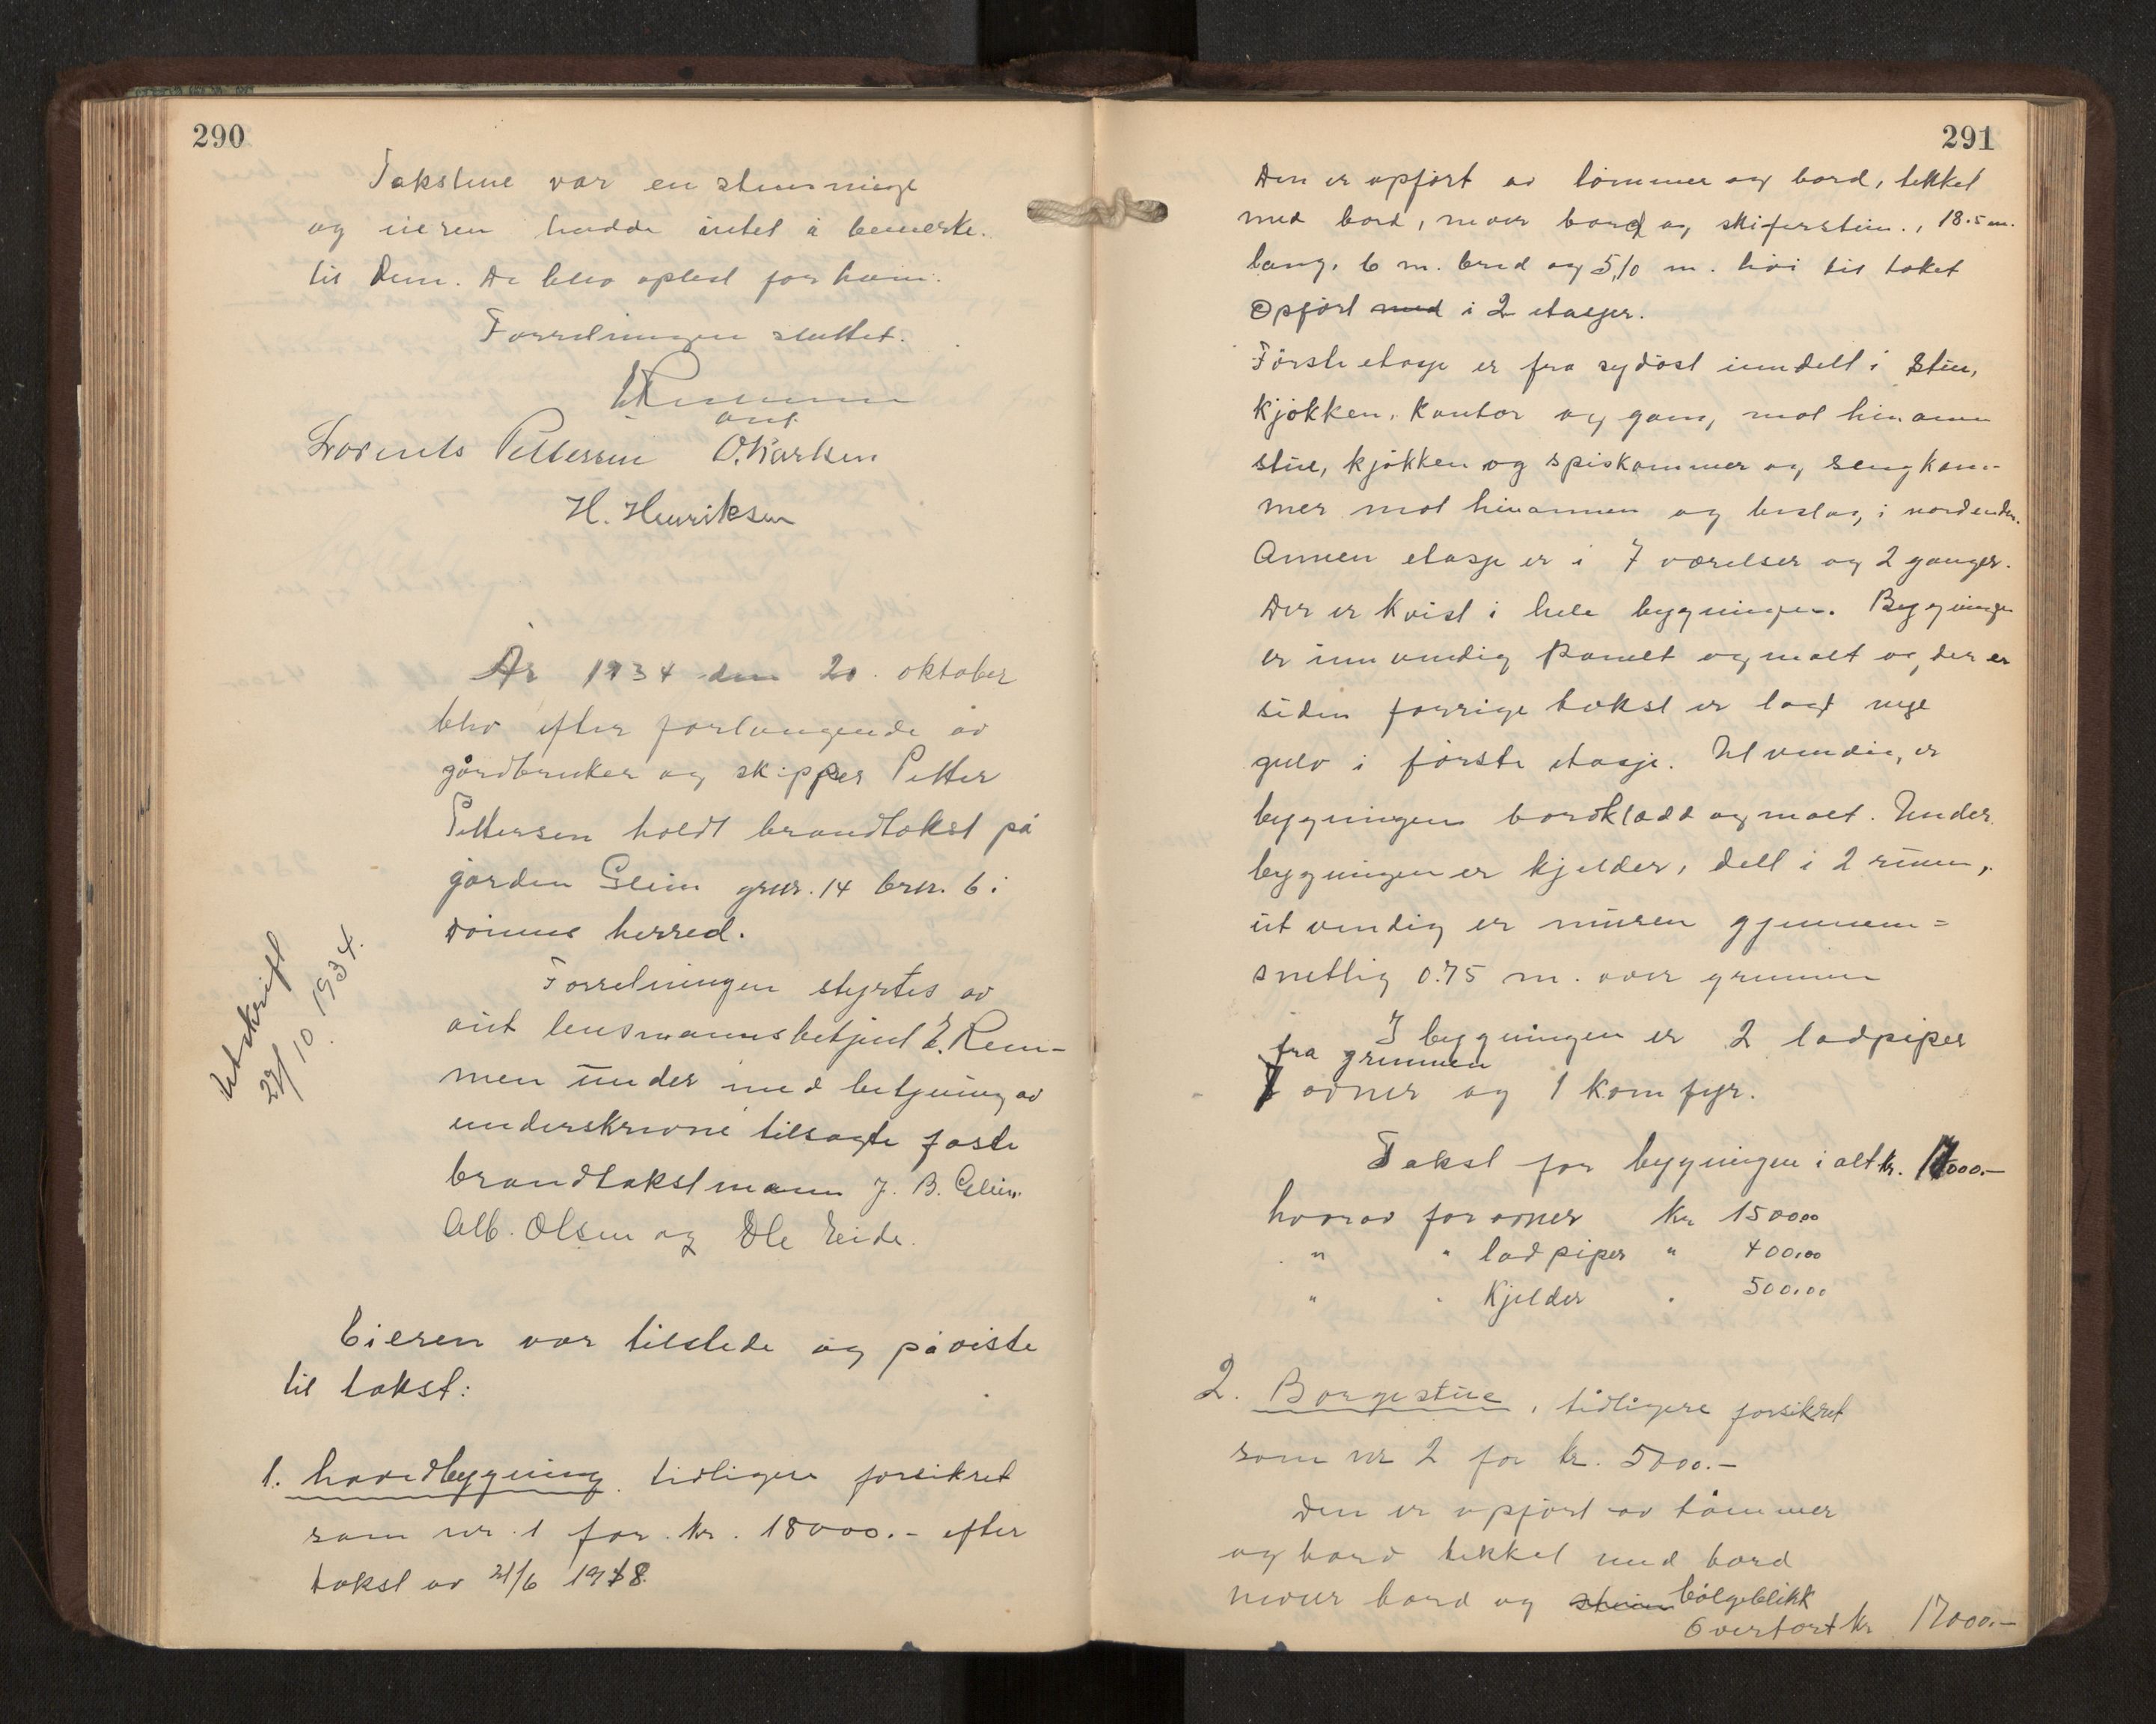 290
Takstene var en stemmige
og eieren hadde intet å bemerke
til dem. De blev oplest for ham.
Forretningen sluttet.
aut
Lorents Pettersen O. Karlsen
H. Henriksen
År 1934 den 20. oktober
blev efter forlangende av
gårdbruker og skipper Petter
Pettersen holdt brandtakst på
gården Glein gnr. 14 brn. 6 i
Dønnes herred.
Forretningen styrtes av
aut lensmannsbetjent E. Rem-
men under med betjening av
underskrevne tilsagte faste
brandtakstmann J. B. Glein
Alb. Olsen og Ole Eide.
Utskrift
27/10 1934.
Eieren var tilstede og påviste
til takst:
1. hovedbygning. tidligere forsikret
som nr. 1 for kr. 18000.- efter
takst av 21/6 1918.
291
Den er opført av tømmer og bord, tekket
med bord, never bord og skiferstein., 18.5 m.
lang, 6 m. bred og 5,10 m. høi til taket
Opført med i 2 etasjer.
Første etasje er fra sydøst inndelt i stue,
kjøkken, kontor og gang, mot hinanen
stue, kjøkken og spiskammer og sengkam-
mer mot hinannen og bislag i nordenden.
Annen etasje er i 7 værelser og 2 ganger.
Der er kvist i hele bygningen. Bygningen
er innvendig panelt og malt og der er
siden forrige takst er lagt nye
gulv i første etasje. Utvendig er
bygningen bordkledd og malt. Under
bygningen er kjelder, delt i 2 rum,
utvendig er muren gjennem=
snetlig 0.75 m. over grunnen
I bygningen er 2 ladpiper
fra grunnen
7 ovner og 1 komfyr.
Takst for bygningen i alt kr. 17000.-
hvorav for ovner kr 1500.00
" " ladpiper " 400.00
" " Kjelder " 500.00
2. Borgestue, tidligere forsikret
som nr 2 for kr. 5000.-
Den er opført av tømmer
og bord tekket med bord
never bord og bølgeblikk
Overført kr 17000.-